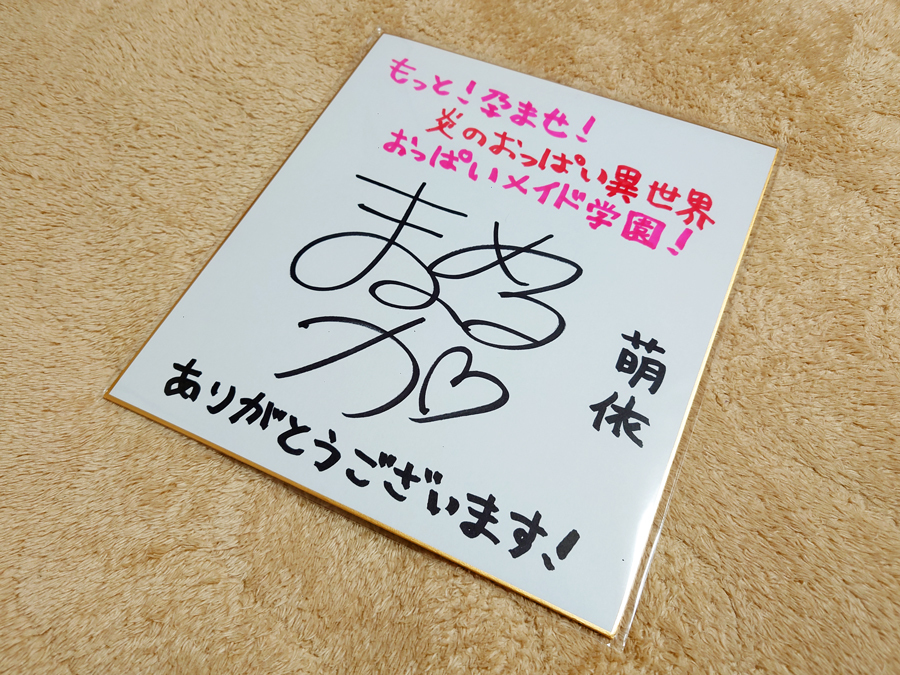 もっと！孕ませ！
炎のおっぱい異世界
おっぱいメイド学園！
まるめる
か♡
萌依
ありがとうございます！